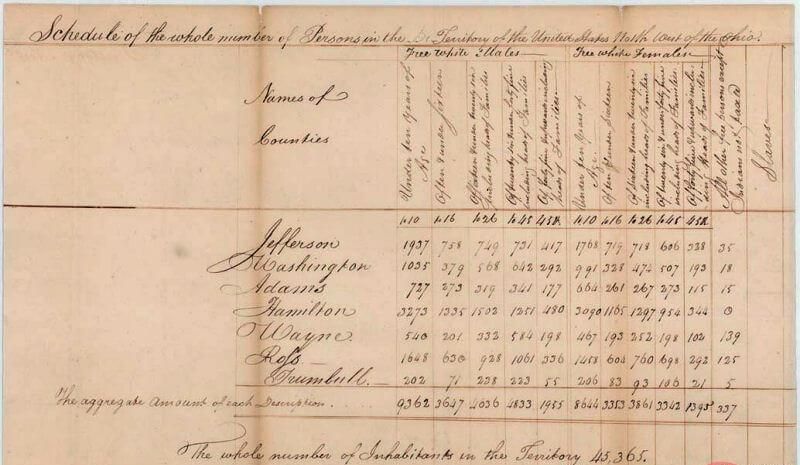 Schedule of the whole number of Persons in the Territory of the United States North West of the Ohio.
Free white Males Free white Females
Names of
Counties
Under ten years of Age
Of ten & under sixteen
Of sixteen & under twenty six including heads of Families
Of twenty six & under forty five including heads of Families
Of forty five & upwards including heads of Families
Under ten years of Age
Of ten & under sixteen
Of sixteen & under twenty six including heads of Families
Of twenty six & under forty five including heads of Families
Of forty five & upwards including heads of Families
All other free persons except Indians not taxed
Slaves
to 10 to 16 to 26 to 45 45 & to 10 to 16 to 26 to 45 45 &
Jefferson 1937 758 749 731 417 1768 719 718 606 328 35
Washington 1035 379 568 642 292 991 328 474 507 193 18
Adams 727 273 319 341 177 664 261 267 273 115 15
Hamilton 3273 1335 1502 1251 480 3090 1165 1297 954 344 0
Wayne 540 201 332 584 198 467 193 252 198 102 139
Ross 1648 630 928 1061 336 1458 604 760 698 292 125
Trumbull 202 71 238 223 55 206 83 93 106 21 5
The aggregate amount of each Description. 9362 3647 4636 4833 1955 8644 3353 3861 3342 1395 337
The whole number of Inhabitants in the Territory 45,365.